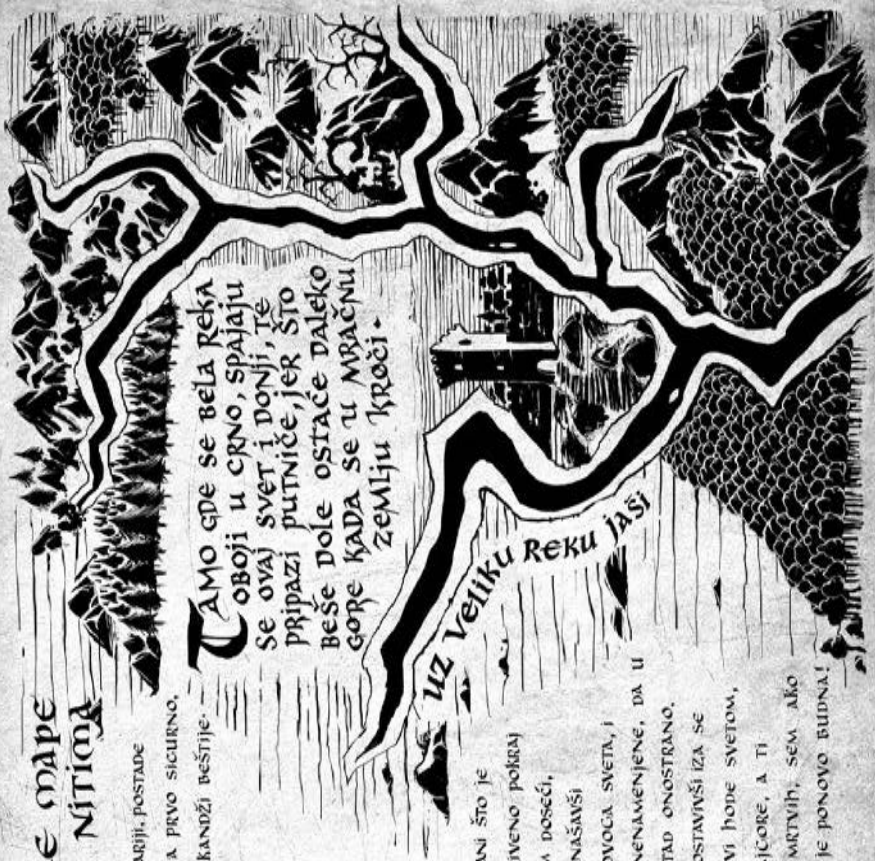 E MAPE
NITIMA
ARIJI, POSTADE
A PRVO SIGURNO,
KANDŽI BEŠTIJE.
TAMO GDE SE BELA REKA
OBOJI U CRNO, SPAJAJU
SE OVAJ SVET I DONJI, TE
PRIPAZI PUTNIČE, JER ŠTO
BEŠE DOLE OSTAĆE DALEKO
GORE KADA SE U MRAČNU
ZEMLJU KROČI.
UZ VELIKU REKU JAŠI
ANI ŠTO JE
IVENO POKRAJ
M DOSEĆI,
NAŠAVŠI
OVOGA SVETA, I
NENAMENJENE, DA U
TAD ONOSTRANO.
OSTAVIVŠI IZA SE
VI HODE SVETOM,
JGORE, A TI
MRTVIH, SEM AKO
JE PONOVO BUDNA!